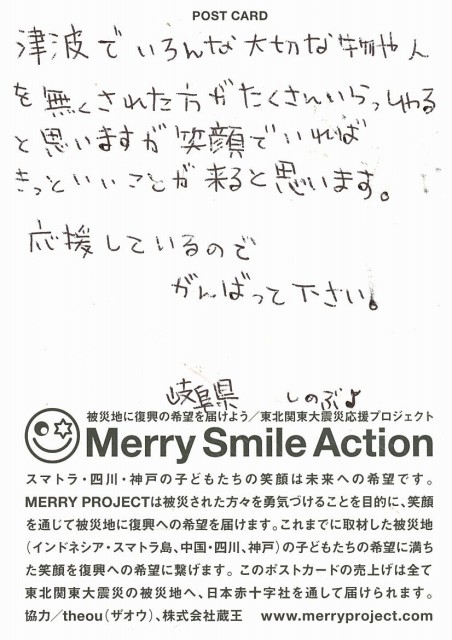 POST CARD
津波でいろんな大切な物や人
を無くされた方がたくさんいらっしゃる
と思いますが笑顔でいれば
きっといいことが来ると思います。
応援しているので
がんばって下さい。
岐阜県 しのぶより
被災地に復興の希望を届けよう/東北関東大震災応援プロジェクト
Merry Smile Action
スマトラ・四川・神戸の子どもたちの笑顔は未来への希望です。
MERRY PROJECTは被災された方々を勇気づけることを目的に、笑顔
を通じて被災地に復興への希望を届けます。これまでに取材した被災地
(インドネシア・スマトラ島、中国・四川、神戸)の子どもたちの希望に満ち
た笑顔を復興への希望に繋げます。このポストカードの売上げは全て
東北関東大震災の被災地へ、日本赤十字社を通して届けられます。
協力/theou(ザオウ)、株式会社蔵王 www.merryproject.com